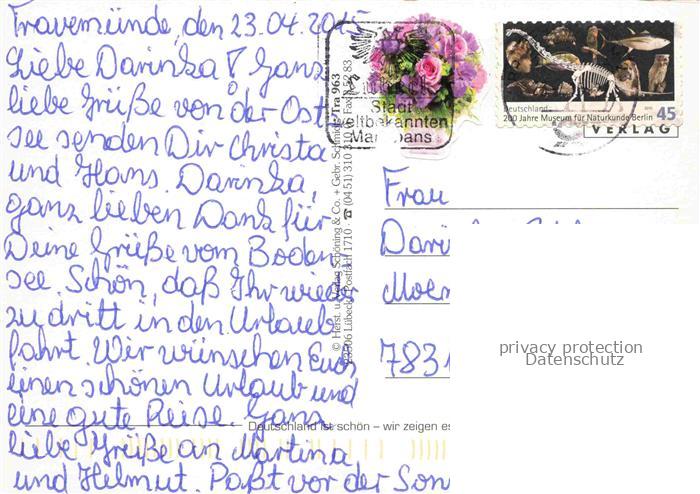 Travemünde, den 23.04.2015
Liebe Darinka! Ganz
liebe Grüße von der Ost
see senden Dir Christa
und Hans. Darinka,
ganz lieben Dank für
Deine Grüße vom Boden
see. Schön, daß Ihr wieder
zu dritt in den Urlaub
fahrt. Wir wünschen Euch
einen schönen Urlaub und
eine gute Reise. Ganz
liebe Grüße an Martina
und Helmut. Paßt vor der Son
Stadt
weltbekannten
Marzipans
Deutschland
200 Jahre Museum für Naturkunde Berlin 45
VERLAG
© Herst. u. Verlag Schöning & Co. + Gebr. Schmidt Tra 963
23506 Lübeck Postfach 1710 ☎ (04 51) 310 31
Frau
Dari
Moer
7831
privacy protection
Datenschutz
Deutschland ist schön – wir zeigen es